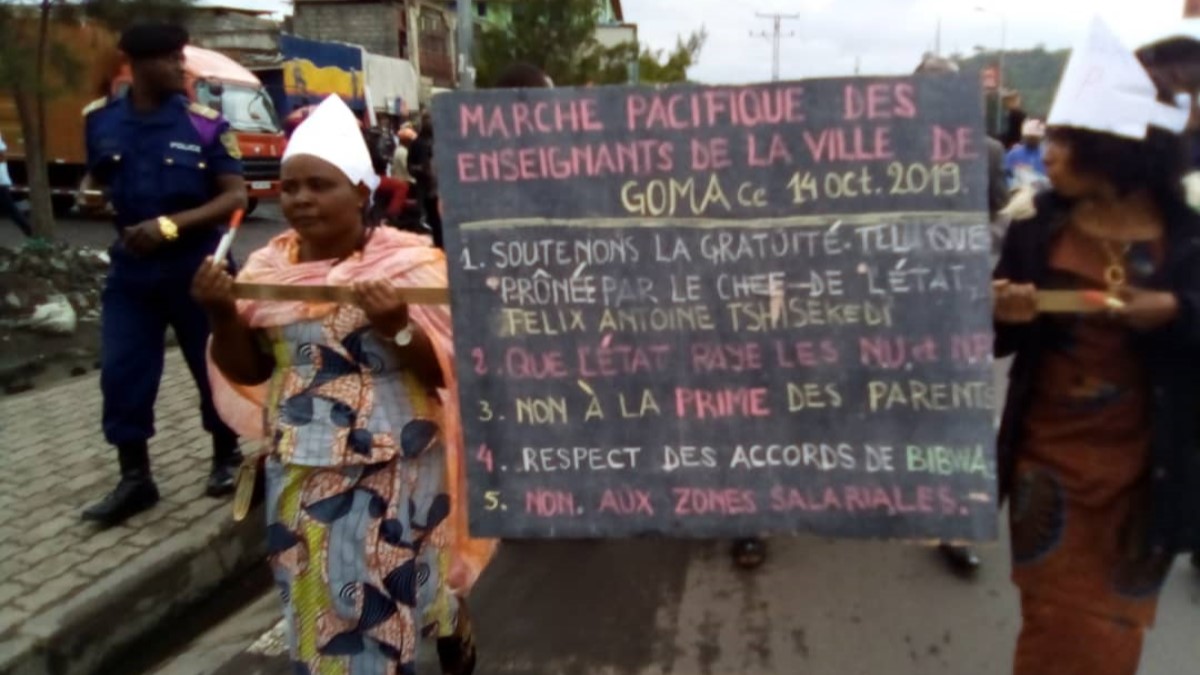 POLICE
MARCHE PACIFIQUE DES
ENSEIGNANTS DE LA VILLE DE
GOMA Ce 14 Oct. 2019.
1. SOUTENONS LA GRATUITÉ TEL QUE
PRÔNÉE PAR LE CHEF DE L'ÉTAT,
FELIX ANTOINE TSHISEKEDI
2. QUE L'ÉTAT RAYE LES NU. et
3. NON À LA PRIME DES PARENTS
4. RESPECT DES ACCORDS DE BIBWA
5. NON. AUX ZONES SALARIALES.-